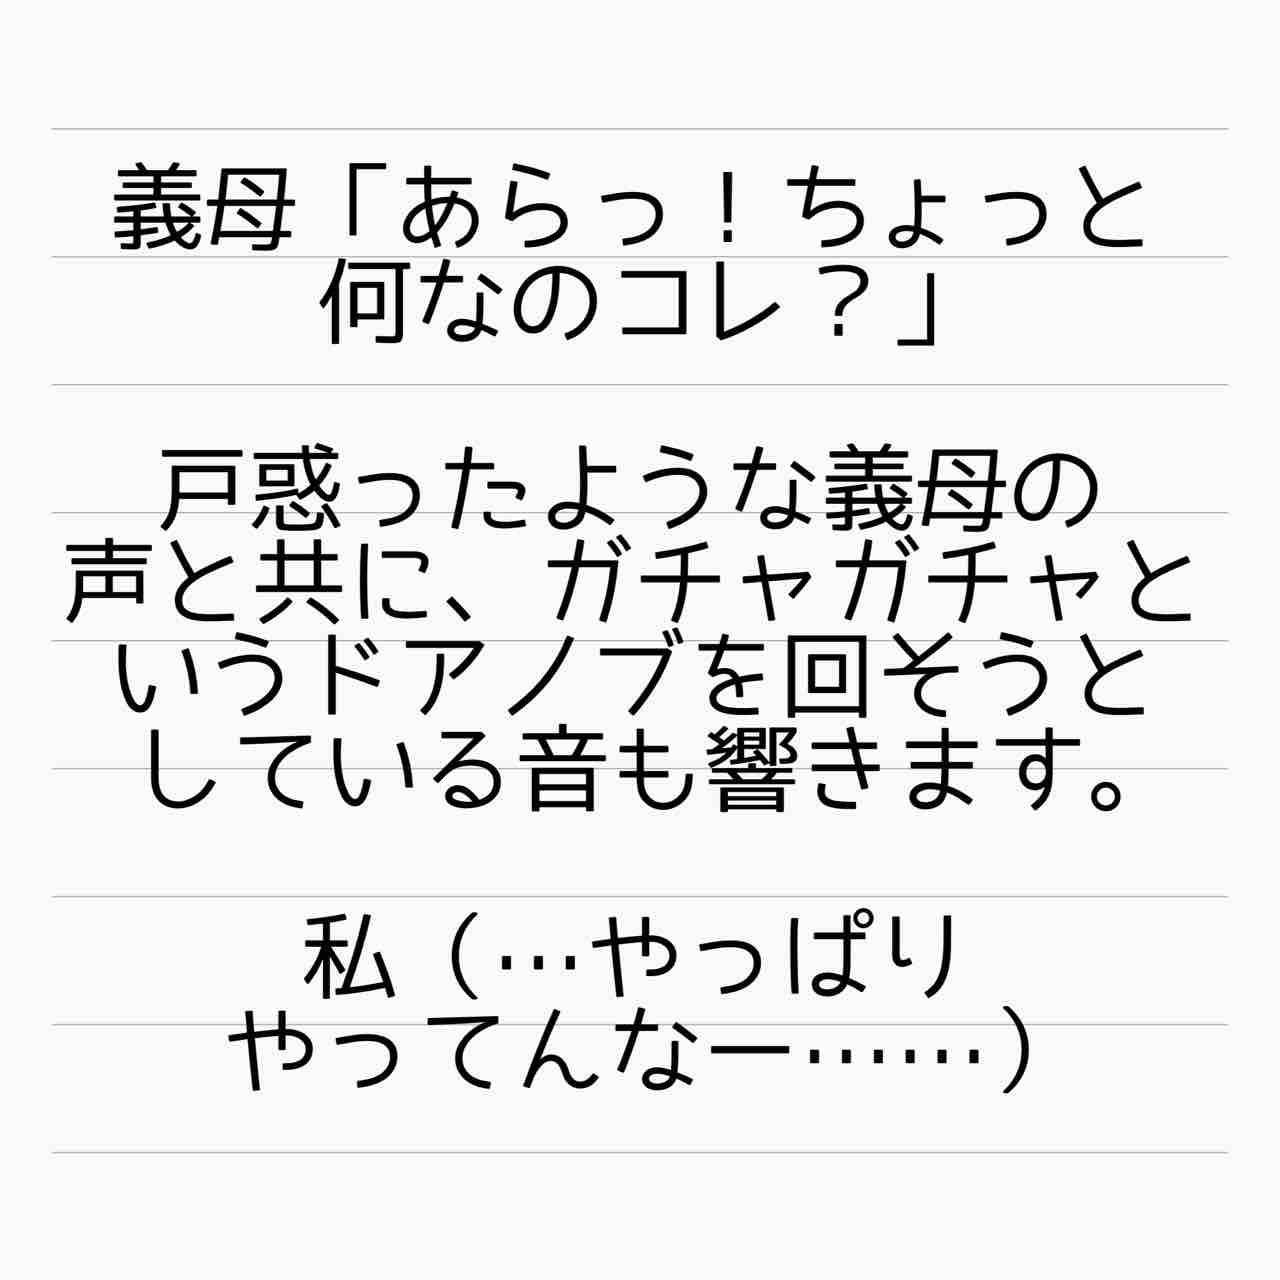 義母「あらっ！ちょっと
何なのコレ？」
戸惑ったような義母の
声と共に、ガチャガチャと
いうドアノブを回そうと
している音も響きます。
私（…やっぱり
やってんなー……）